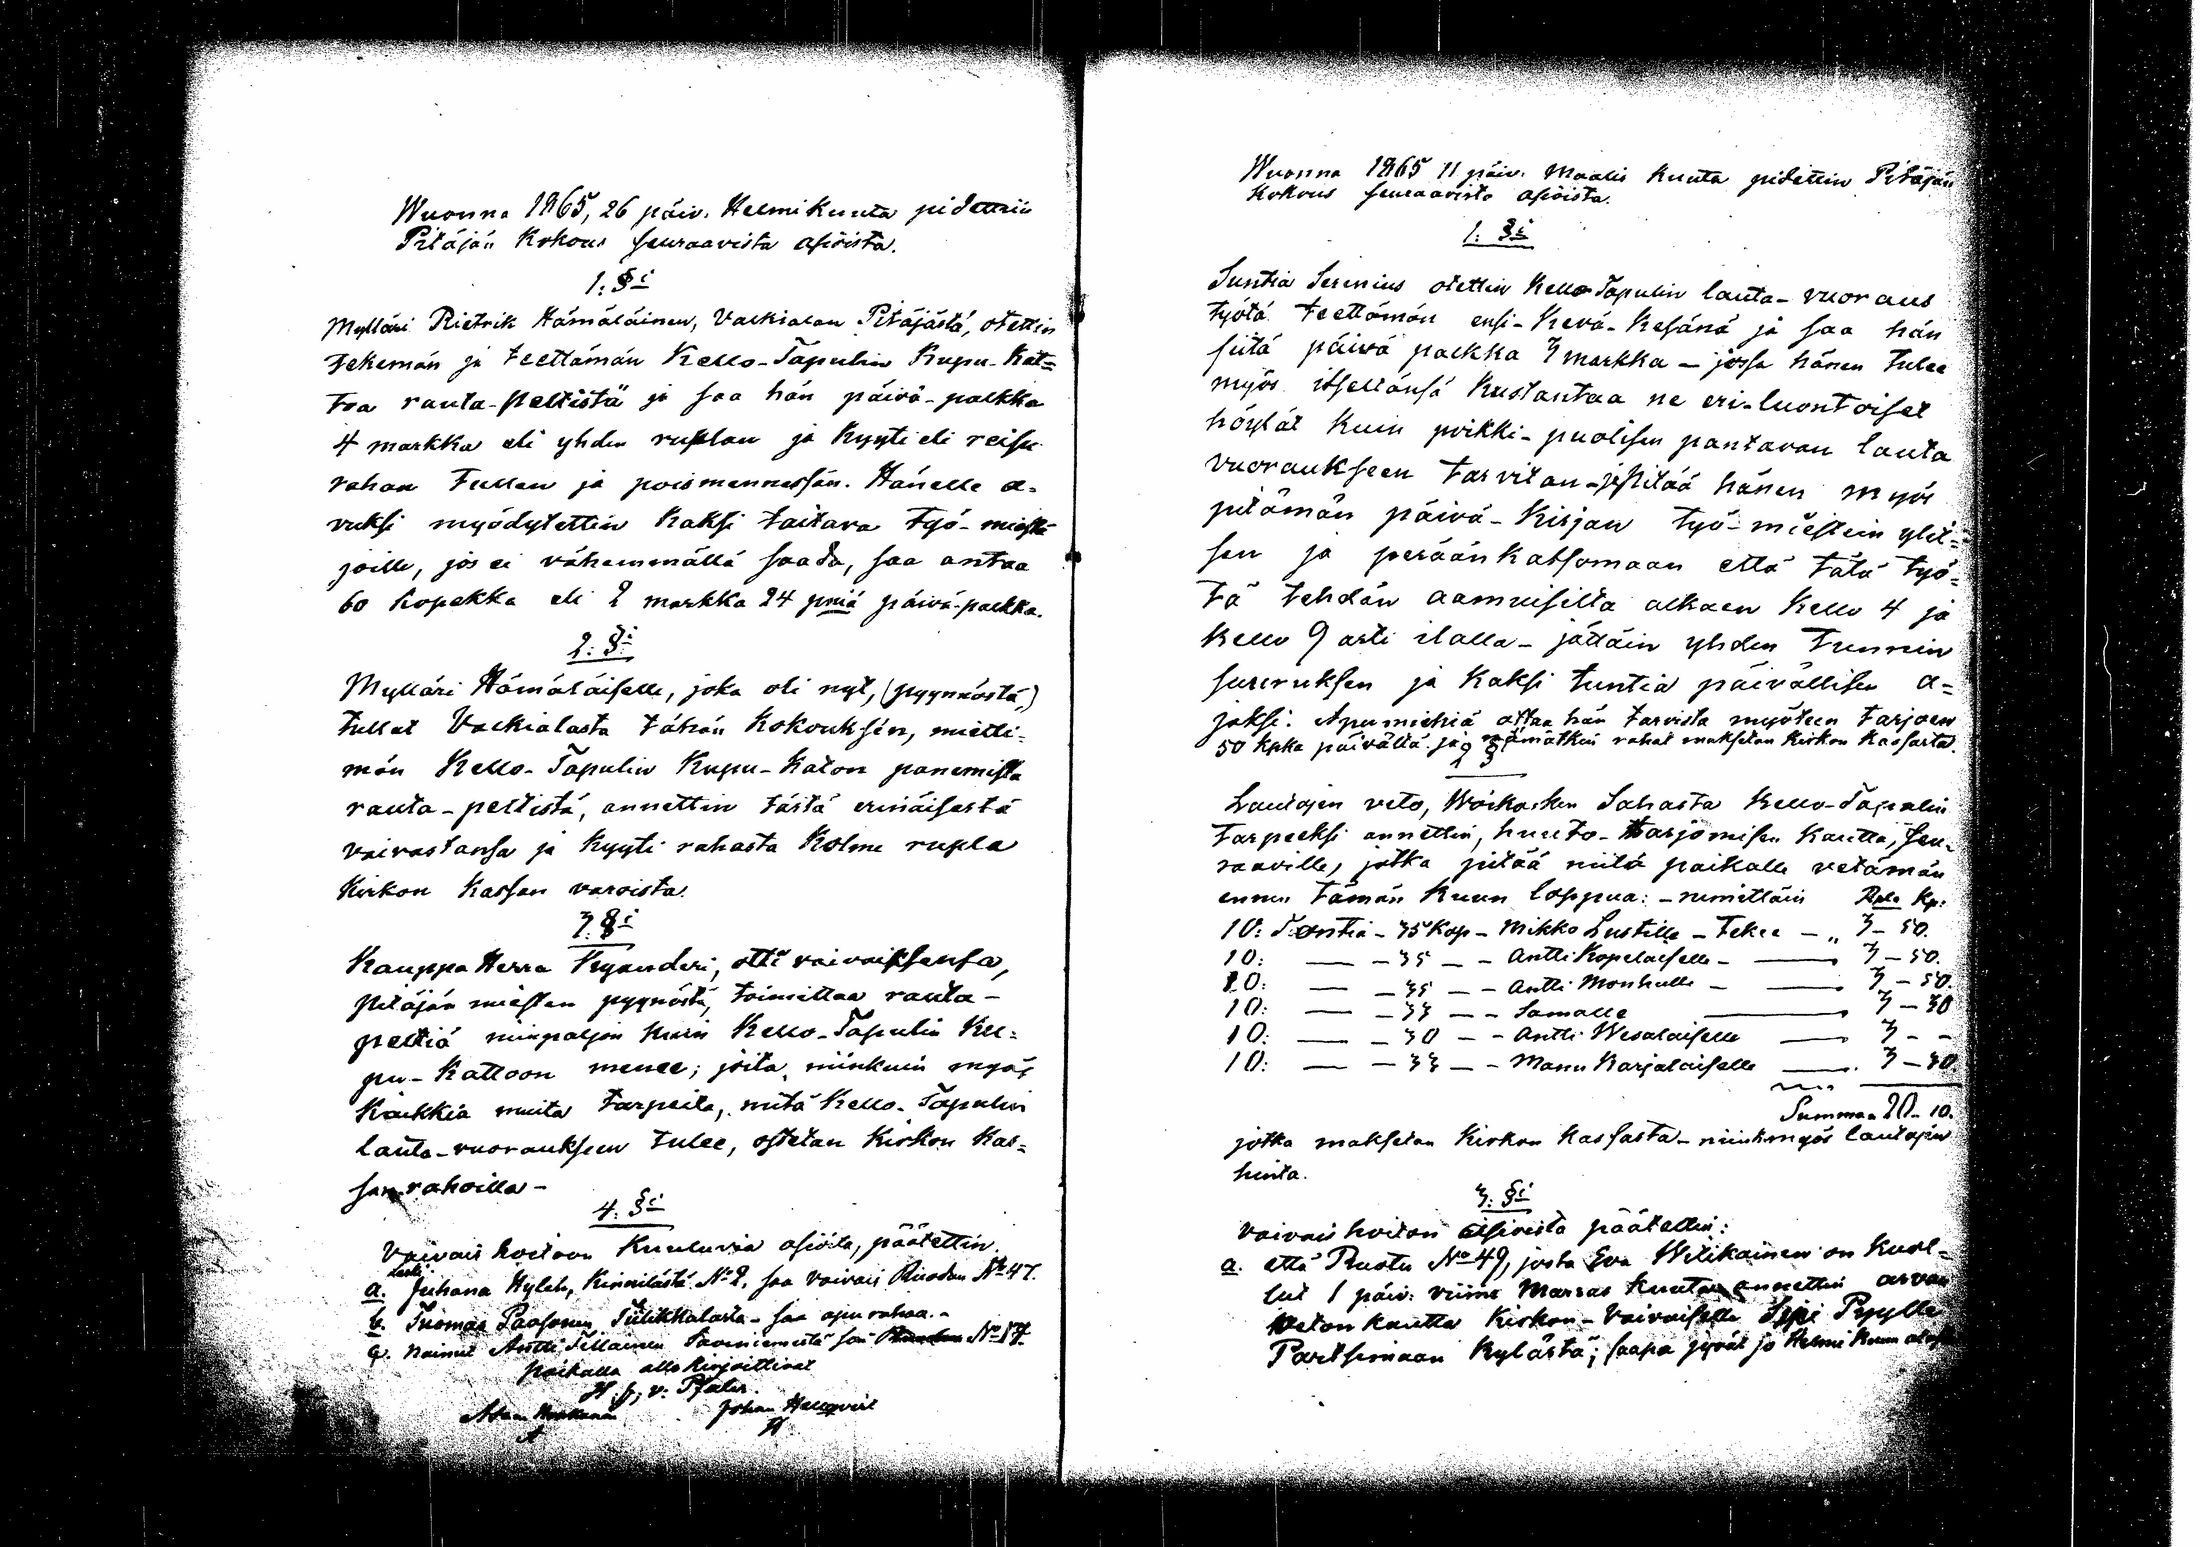 Wuonna 1865, 26 päiv. Helmikuuta pidettiin
Pitäjän Kokous seuraavista asioista.
1: §i
Mylläri Pietrik Hämäläinen, Valkialan Pitäjästä, otettin
tekemän ja teettämän Kello-Tapulin Kupu-Kat=
toa rauta-peltistä ja saa hän päivä-palkka
4 markka eli yhden ruplan ja Kyyti eli reisu
rahan tullen ja poismennessän. Hänelle a=
vuksi myödytettin Kaksi taitava työ-miestä
joille, jos ei vähemmällä saada, saa antaa
60 kopekka eli 2 markka 24 pniä päivä-palkka.
2: §i
Mylläri Hämäläiselle, joka oli nyt, (pyynnöstä,)
tullut Valkialasta tähän Kokouksen, mietti=
män Kello-Tapulin Kupu-Katon panemista
rauta-peltistä, annettin tästä erinäisestä
vaivastansa ja Kyyti rahasta Kolme rupla
Kirkon Kassan varoista.
3. §i
Kauppa Herra Kyanderi, otti vaivaiksensa,
Pitäjän miesten pyynöstä, toimittaa rauta-
peltiä niinpaljon kuin Kello-Tapulin Ku=
pu-Kattoon menee; joita, niinkuin myös
Kaikkia muita tarpeita, mitä Kello-Tapulin
lauta-vuoraukseen tulee, ostetan Kirkon Kas=
san rahoilla-
4. §i
Vaivais hoitoon Kuuluvia asioita, päätettin
Leski
a. Juhana Hyleh, Kinnilästä No 2, saa vaivais Ruodun No 47.
b. Tuomas Paasonen Tiilikkalasta - saa apu rahaa.-
c. nainut Antti Tillainen saa No 17.
paikalla alla kirjoittivat
Johan Hellqvist
Wuonna 1865 11 päiv. Maalis kuuta pidettin Pitäjän
Kokous seuraavista asioista.
1: §i
Suntia Serenius otettin Kello-Tapulin lauta-vuoraus
työtä teettämän ensi-Kevä-Kesänä ja saa hän
siitä päivä palkka 3 markka - jossa hänen tulee
myös itsellänsä Kustantaa ne eri-luontoiset
höylät kuin poikki-puolisen pantavan lauta
vuoraukseen tarvitan - pitää hänen myös
pitämän päivä-Kirjan työ-miestein ylit=
sen ja peräänkatsomaan että tätä työ=
tä tehdän aamuisilta alkaen Kello 4 ja
Kello 9 asti illalla - jättäin yhden tunnin
suuruksen ja Kaksi tuntia päivällisen a=
jaksi. Apumiehiä ottaa hän tarvista myöten tarjoen
50 kpka päivältä ja nämätkin rahat maksetan Kirkon Kassasta.
2 §
Lautojen veto, Woikosken Sahasta Kello-Tapulin
tarpeeksi annettin, huuto-tarjomisen kautta, seu-
raaville, jotka pitää niitä paikalle vetämän
ennen tämän Kuun loppua: - nimittäin Rpla Kp:
10: Tontia - 35 Kop - Mikko Lustille - Tekee - „ 3 - 50.
10: — - 35 - - Antti Kopelaiselle - — 3 - 50.
10: — - 35 - - Antti Monkulle - — 3 - 50.
10: — - 33 - - Samalle — 3 - 30
10: — - 30 - - Antti Wesalaiselle — 3 - -
10: — - 33 - - Manu Karjalaiselle — 3 - 30
Summa 20 - 10.
jotka maksetan Kirkon Kassasta - niinkmyös lautojen
hinta.
3: §i
Vaivais hoiton asioista päätettin:
a. että Ruotu No 49, josta Eva Wilikainen on kuol=
lut 1 päiv. viime Marras kuuta annettin arvan
veton kautta Kirkon-Vaivaiselle
Kylästä; saapa jyvät jo Helmi Kuun